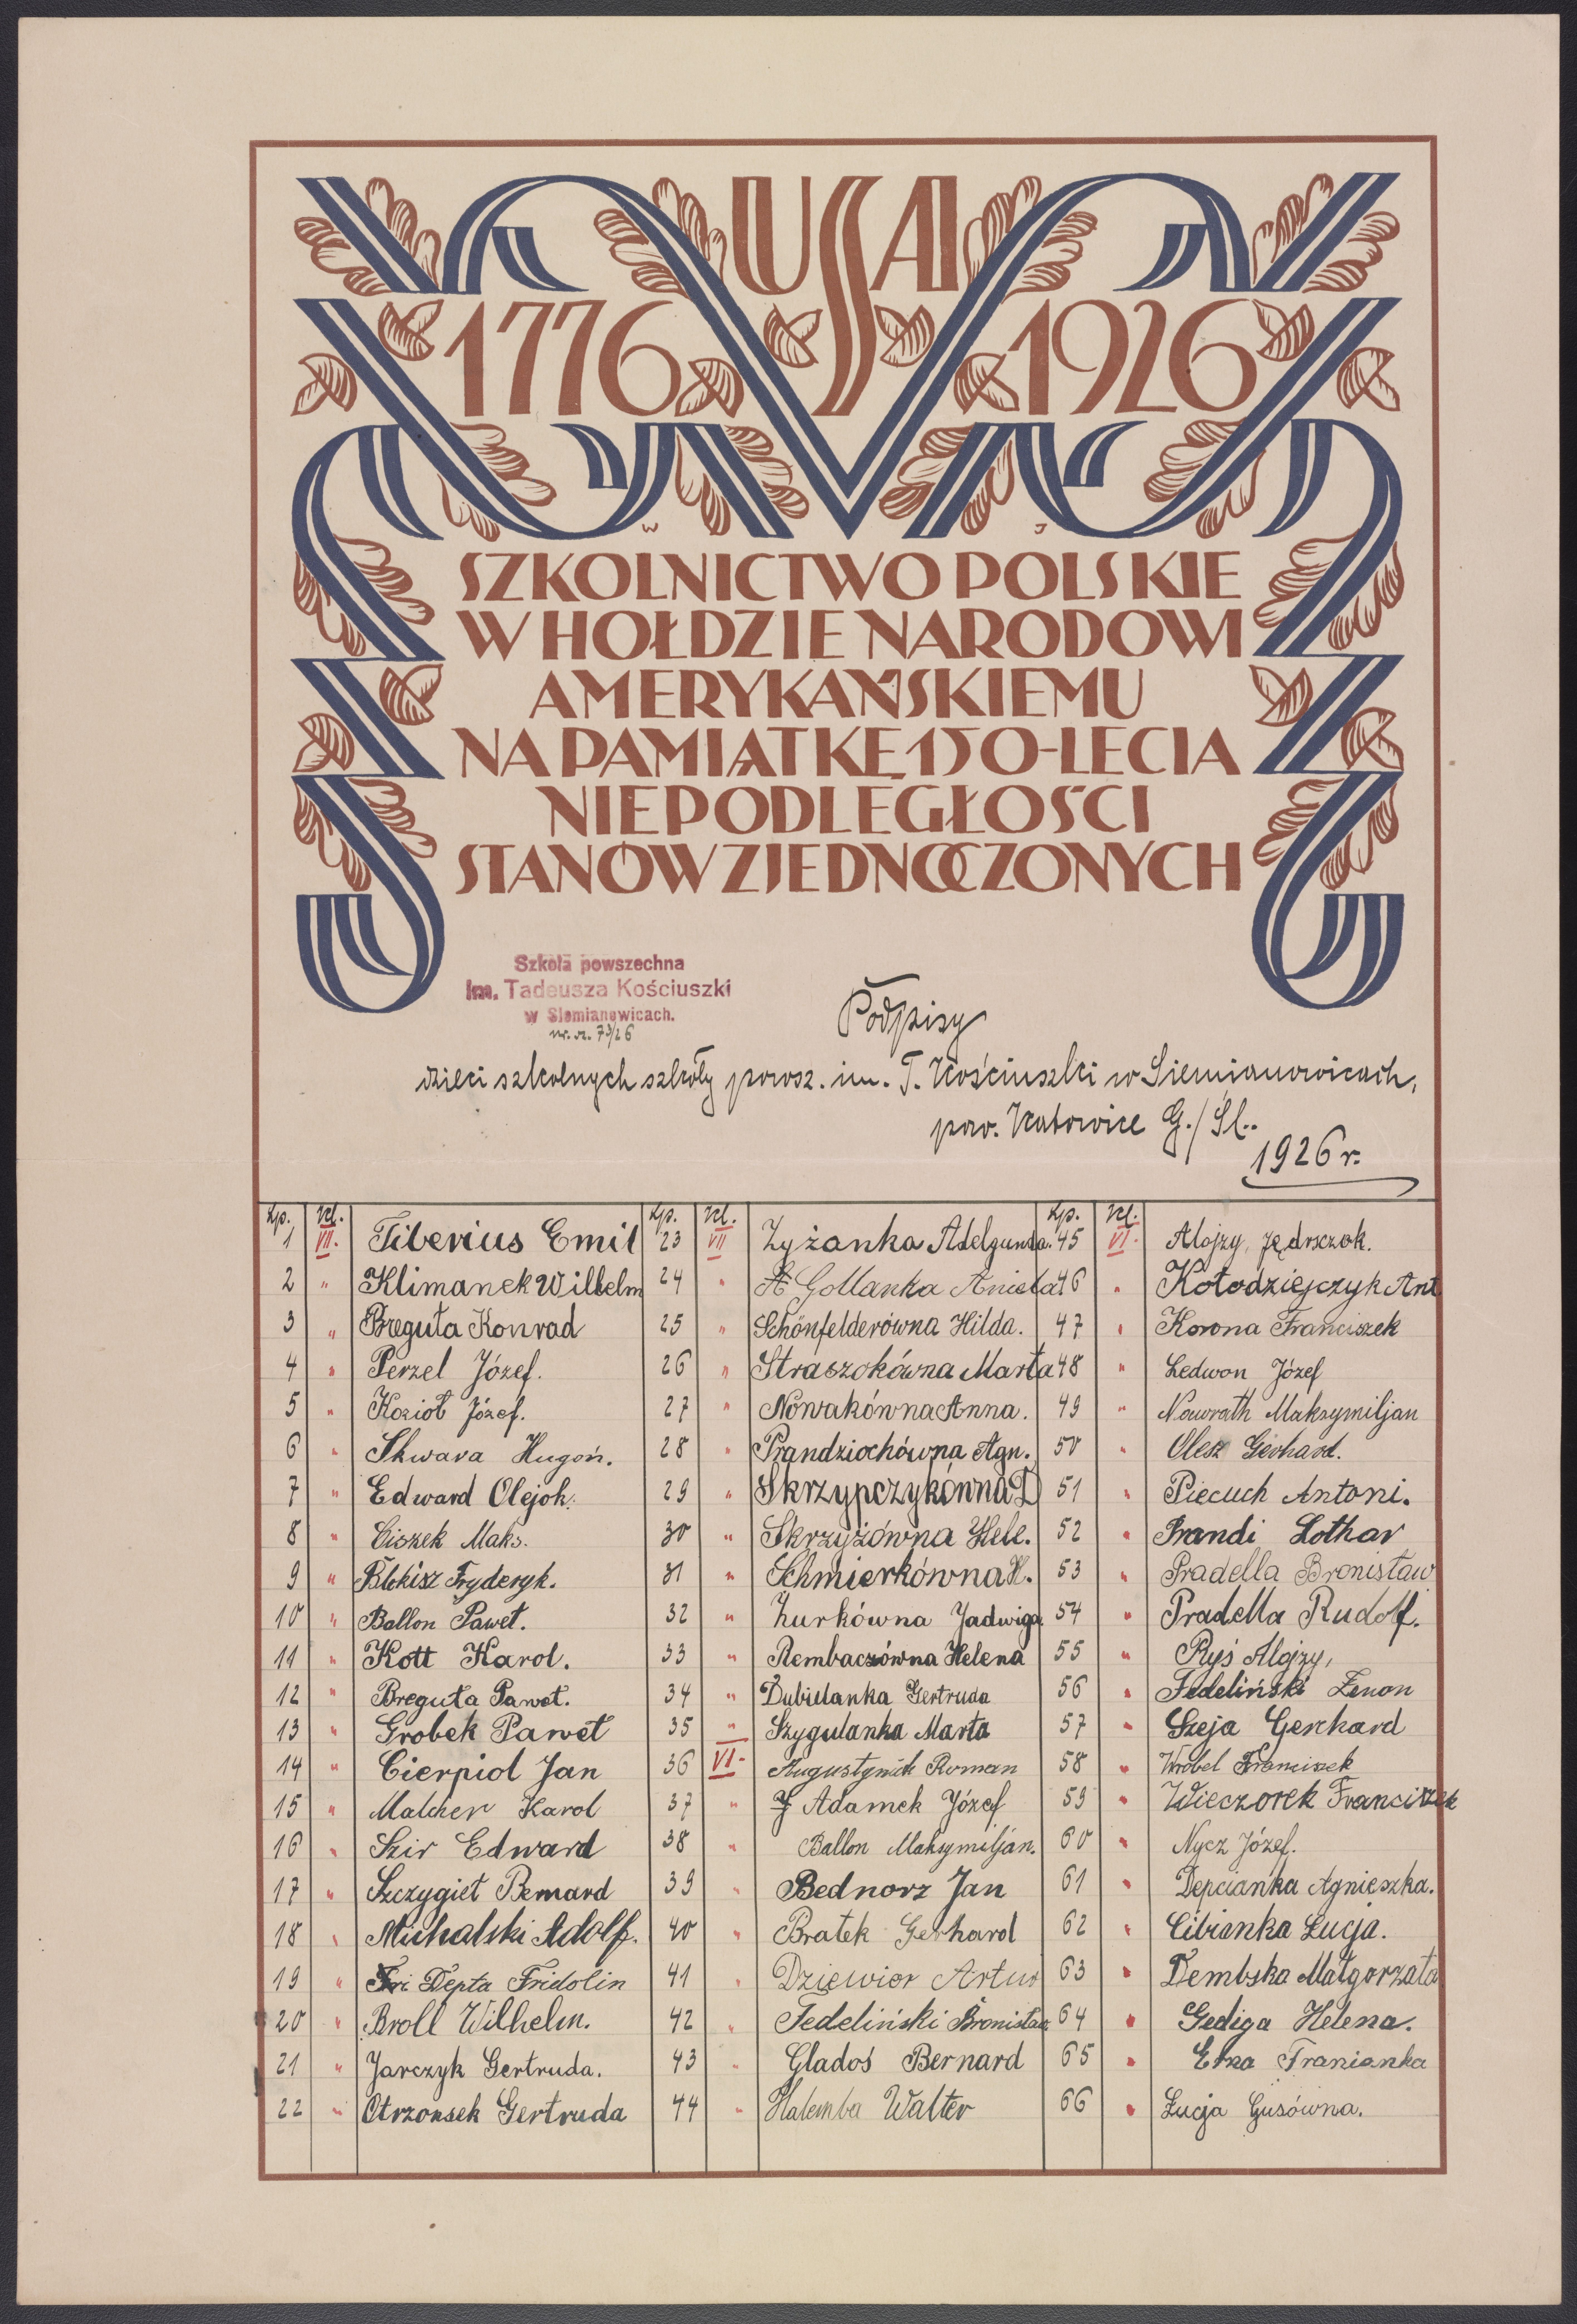 USA
1776 1926
W J
SZKOLNICTWO POLSKIE
W HOŁDZIE NARODOWI
AMERYKAŃSKIEMU
NA PAMIĄTKĘ 150-LECIA
NIEPODLEGŁOŚCI
STANÓW ZJEDNOCZONYCH
Szkoła powszechna
Im. Tadeusza Kościuszki
w Siemianowicach.
73/26
Podpisy
dzieci szkolnych szkoły powsz. im. T. Kościuszki w Siemianowicach,
pow. Katowice G./Śl..
1926 r.
Lp. Kl.
1 VII. Tiberius Emil
2 " Klimanek Wilhelm
3 " Breguła Konrad
4 " Perzel Józef.
5 " Kozioł Józef.
6 " Skwara Hugon.
7 " Edward Olejok.
8 " Ciszek Maks.
9 " Fryderyk.
10 " Ballon Paweł.
11 " Kott Karol.
12 " Breguła Paweł.
13 " Grobek Paweł
14 " Cierpiol Jan
15 " Malcher Karol
16 " Szir Edward
17 " Szczygieł Bernard
18 " Michalski Adolf.
19 " Fri Depta Fridolin
20 " Broll Wilhelm.
21 " Jarczyk Gertruda.
22 " Otrzonsek Gertruda
Lp. Kl.
23 VII Zyżanka Adelgunda.
24 " Gollanka Aniela
25 " Schönfelderówna Hilda.
26 " Straszokówna Marta
27 " Nowakówna Anna.
28 " Prandziochówna Agn.
29 " Skrzypczykówna D
30 " Skrzyżówna Hele.
31 " Schmierkówna H.
32 " Żurkówna Jadwiga
33 " Rembaczówna Helena
34 " Dubielanka Gertruda
35 " Szygulanka Marta
36 VI- Augustyniok Roman
37 " J Adamek Józef
38 " Ballon Maksymiljan.
39 " Bednorz Jan
40 " Bratek Gerhard
41 " Dziewior Artur
42 " Fedeliński Bronisław
43 " Gladoś Bernard
44 " Halemba Walter
Lp. Kl.
45 VI. Alojzy Jędrsczok.
46 " Kołodziejczyk Ant
47 " Korona Franciszek
48 " Ledwon Józef
49 " Nowrath Maksymiljan
50 " Olesz Gerhard.
51 " Piecuch Antoni.
52 " Prandi Lothar
53 " Pradella Bronisław
54 " Pradella Rudolf.
55 " Ryś Alojzy,
56 " Fedeliński Zenon
57 " Szeja Gerhard
58 " Wrobel Franciszek
59 " Wieczorek Franciszek
60 " Nycz Józef.
61 " Depcianka Agnieszka.
62 " Cibianka Łucja.
63 " Dembska Małgorzata
64 " Gediga Helena.
65 " Franianka
66 " Łucja Gusówna.